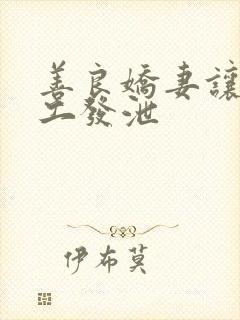 善良嬌妻讓
工發泄
伊布莫